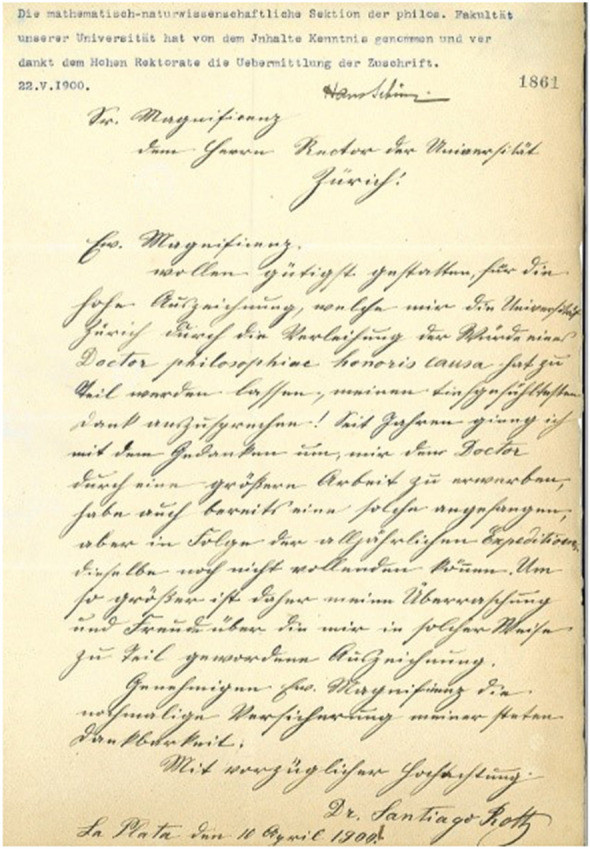 Die mathematisch-naturwissenschaftliche Sektion der philos. Fakultät
unserer Universität hat von dem Jnhalte Kenntnis genommen und ver
dankt dem Hohen Rektorate die Uebermittlung der Zuschrift.
22.V.1900.
Hans Schinz.
1861
Sr. Magnificenz
dem Herrn Rector der Universität
Zürich!
Ew. Magnificenz.
wollen gütigst gestatten, für die
hohe Auszeichnung, welche mir die Universität
Zürich durch die Verleihung der Würde eines
Doctor philosophiae honoris causa hat zu
Teil werden lassen, meinen tiefgefühltesten
Dank auszusprechen! Seit Jahren gieng ich
mit dem Gedanken um, mir den Doctor
durch eine größere Arbeit zu erwerben,
habe auch bereits eine solche angefangen,
aber in Folge der alljährlichen Expeditionen
dieselbe noch nicht vollenden können. Um
so größer ist daher meine Überraschung
und Freude über die mir in solcher Weise
zu Teil gewordene Auszeichnung.
Genehmigen Ew. Magnificenz die
nochmalige Versicherung meiner steten
Dankbarkeit.
Mit vorzüglicher Hochachtung.
Dr. Santiago Roth
La Plata den 10 April 1900.